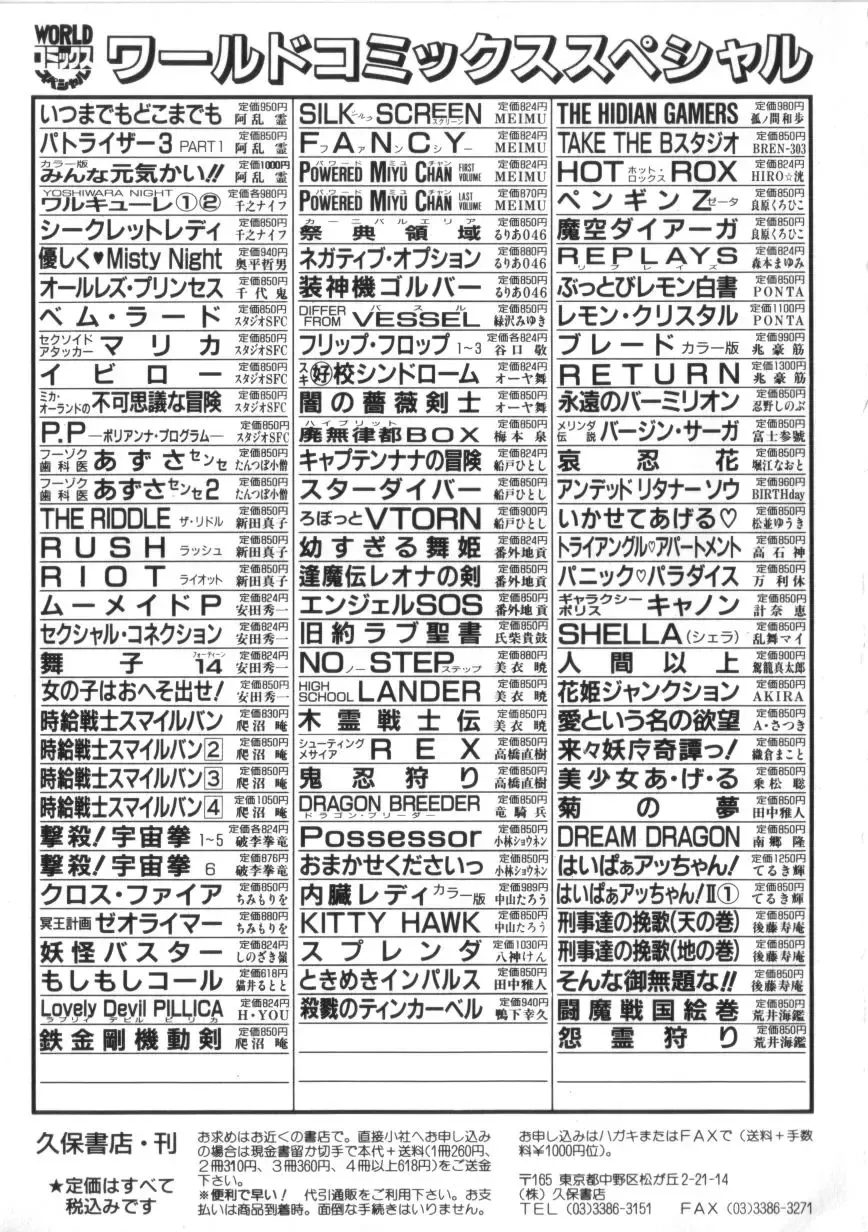 WORLD
コミックス
スペシャル
ワールドコミックススペシャル
いつまでもどこまでも 定価950円 阿乱 霊
パトライザー3 PART1 定価850円 阿乱 霊
カラー版 みんな元気かい!! 定価1000円 阿乱 霊
YOSHIWARA NIGHT ワルキューレ①② 定価各980円 千之ナイフ
シークレットレディ 定価850円 千之ナイフ
優しく♥Misty Night 定価940円 奥平哲男
オールレズ・プリンセス 定価850円 千代 鬼
ベム・ラード 定価850円 スタジオSFC
セクソイドアタッカー マリカ 定価850円 スタジオSFC
イビロー 定価850円 スタジオSFC
ミカ・オーランドの 不可思議な冒険 定価824円 スタジオSFC
P.P ―ポリアンナ・プログラム― 定価850円 スタジオSFC
フーゾク歯科医 あずさセンセ 定価850円 たんつぼ小僧
フーゾク歯科医 あずさセンセ2 定価850円 たんつぼ小僧
THE RIDDLE ザ・リドル 定価850円 新田真子
RUSH ラッシュ 定価824円 新田真子
RIOT ライオット 定価850円 新田真子
ムーメイドP 定価824円 安田秀一
セクシャル・コネクション 定価824円 安田秀一
舞子14 フォーティーン 定価824円 安田秀一
女の子はおへそ出せ! 定価850円 安田秀一
時給戦士スマイルバン 定価830円 爬沼 庵
時給戦士スマイルバン2 定価850円 爬沼 庵
時給戦士スマイルバン3 定価850円 爬沼 庵
時給戦士スマイルバン4 定価1050円 爬沼 庵
撃殺!宇宙拳 1~5 定価各824円 破李拳竜
撃殺!宇宙拳 6 定価876円 破李拳竜
クロス・ファイア 定価850円 ちみもりを
冥王計画 ゼオライマー 定価880円 ちみもりを
妖怪バスター 定価824円 しのざき嶺
もしもしコール 定価618円 猫井るとと
Lovely Devil PILLICA ラブリィ デビル ピリカ 定価824円 H・YOU
鉄金剛機動剣 定価850円 爬沼 庵
SILK シルク SCREEN スクリーン 定価824円 MEIMU
FANCY ファンシー 定価824円 MEIMU
POWERED MIYU CHAN パワード ミユ チャン FIRST VOLUME 定価824円 MEIMU
POWERED MIYU CHAN パワード ミユ チャン LAST VOLUME 定価870円 MEIMU
祭典領域 カーニバルエリア 定価850円 るりあ046
ネガティブ・オプション 定価880円 るりあ046
装神機ゴルバー 定価850円 るりあ046
DIFFER FROM VESSEL バスル 定価850円 緑沢みゆき
フリップ・フロップ 1~3 定価各824円 谷口 敬
スキ 好校シンドローム 定価824円 オーヤ舞
闇の薔薇剣士 定価850円 オーヤ舞
廃無律都BOX ハイブリット 定価850円 梅本 泉
キャプテンナナの冒険 定価824円 船戸ひとし
スターダイバー 定価850円 船戸ひとし
ろぼっとVTORN 定価900円 船戸ひとし
幼すぎる舞姫 定価824円 番外地貢
逢魔伝レオナの剣 定価850円 番外地貢
エンジェルSOS 定価850円 番外地貢
旧約ラブ聖書 定価850円 氏柴貴鼓
NO ノー STEP ステップ 定価880円 美衣 暁
HIGH SCHOOL LANDER 定価850円 美衣 暁
木霊戦士伝 定価850円 美衣 暁
シューティングメサイア REX 定価850円 高橋直樹
鬼忍狩り 定価850円 高橋直樹
DRAGON BREEDER ドラゴン・ブリーダー 定価850円 竜騎兵
Possessor 定価850円 小林ショウネン
おまかせくださいっ 定価850円 小林ショウネン
内臓レディ カラー版 定価989円 中山たろう
KITTY HAWK 定価850円 中山たろう
スプレンダ 定価1030円 八神けん
ときめきインパルス 定価850円 田中雅人
殺戮のティンカーベル 定価940円 鴨下幸久
THE HIDIAN GAMERS 定価980円 孤ノ間和歩
TAKE THE Bスタジオ 定価850円 BREN-303
HOT ホット・ロックス ROX 定価824円 HIRO☆洸
ペンギンZ ゼータ 定価850円 良原くろひこ
魔空ダイアーガ 定価850円 良原くろひこ
REPLAYS リプレイズ 定価824円 森本まゆみ
ぶっとびレモン白書 定価850円 PONTA
レモン・クリスタル 定価1100円 PONTA
ブレード カラー版 定価990円 兆豪筋
RETURN 定価1300円 兆豪筋
永遠のバーミリオン 定価850円 忍野しのぶ
メリンダ伝説 バージン・サーガ 定価850円 富士参號
哀忍花 定価850円 堀江なおと
アンデッド リタナー ソウ 定価960円 BIRTHday
いかせてあげる♡ 定価850円 松並ゆうき
トライアングル♡アパートメント 定価850円 高石神
パニック♡パラダイス 定価850円 万利休
ギャラクシーポリス キャノン 定価850円 計奈 恵
SHELLA (シェラ) 定価850円 乱舞マイ
人間以上 定価900円 駕籠真太郎
花姫ジャンクション 定価850円 AKIRA
愛という名の欲望 定価850円 A・さつき
来々妖疗奇譚っ! 定価850円 鎌倉まこと
美少女あ・げ・る 定価850円 乗松 聡
菊の夢 定価850円 田中雅人
DREAM DRAGON 定価850円 南郷 隆
はいぱぁアッちゃん! 定価1250円 てるき輝
はいぱぁアッちゃん!Ⅱ① 定価850円 てるき輝
刑事達の挽歌(天の巻) 定価850円 後藤寿庵
刑事達の挽歌(地の巻) 定価850円 後藤寿庵
そんな御無題な!! 定価850円 後藤寿庵
闘魔戦国絵巻 定価850円 荒井海鑑
怨霊狩り 定価850円 荒井海鑑
久保書店・刊
★定価はすべて
税込みです
お求めはお近くの書店で。直接小社へお申し込み
の場合は現金書留か切手で本代+送料(1冊260円、
2冊310円、3冊360円、4冊以上618円)をご送金
下さい。
※便利で早い! 代引通販をご利用下さい。お支
払いは商品到着時。面倒な手続きはいりません。
お申し込みはハガキまたはFAXで(送料+手数
料¥1000円位)。
〒165 東京都中野区松が丘2-21-14
(株)久保書店
TEL (03)3386-3151 FAX (03)3386-3271